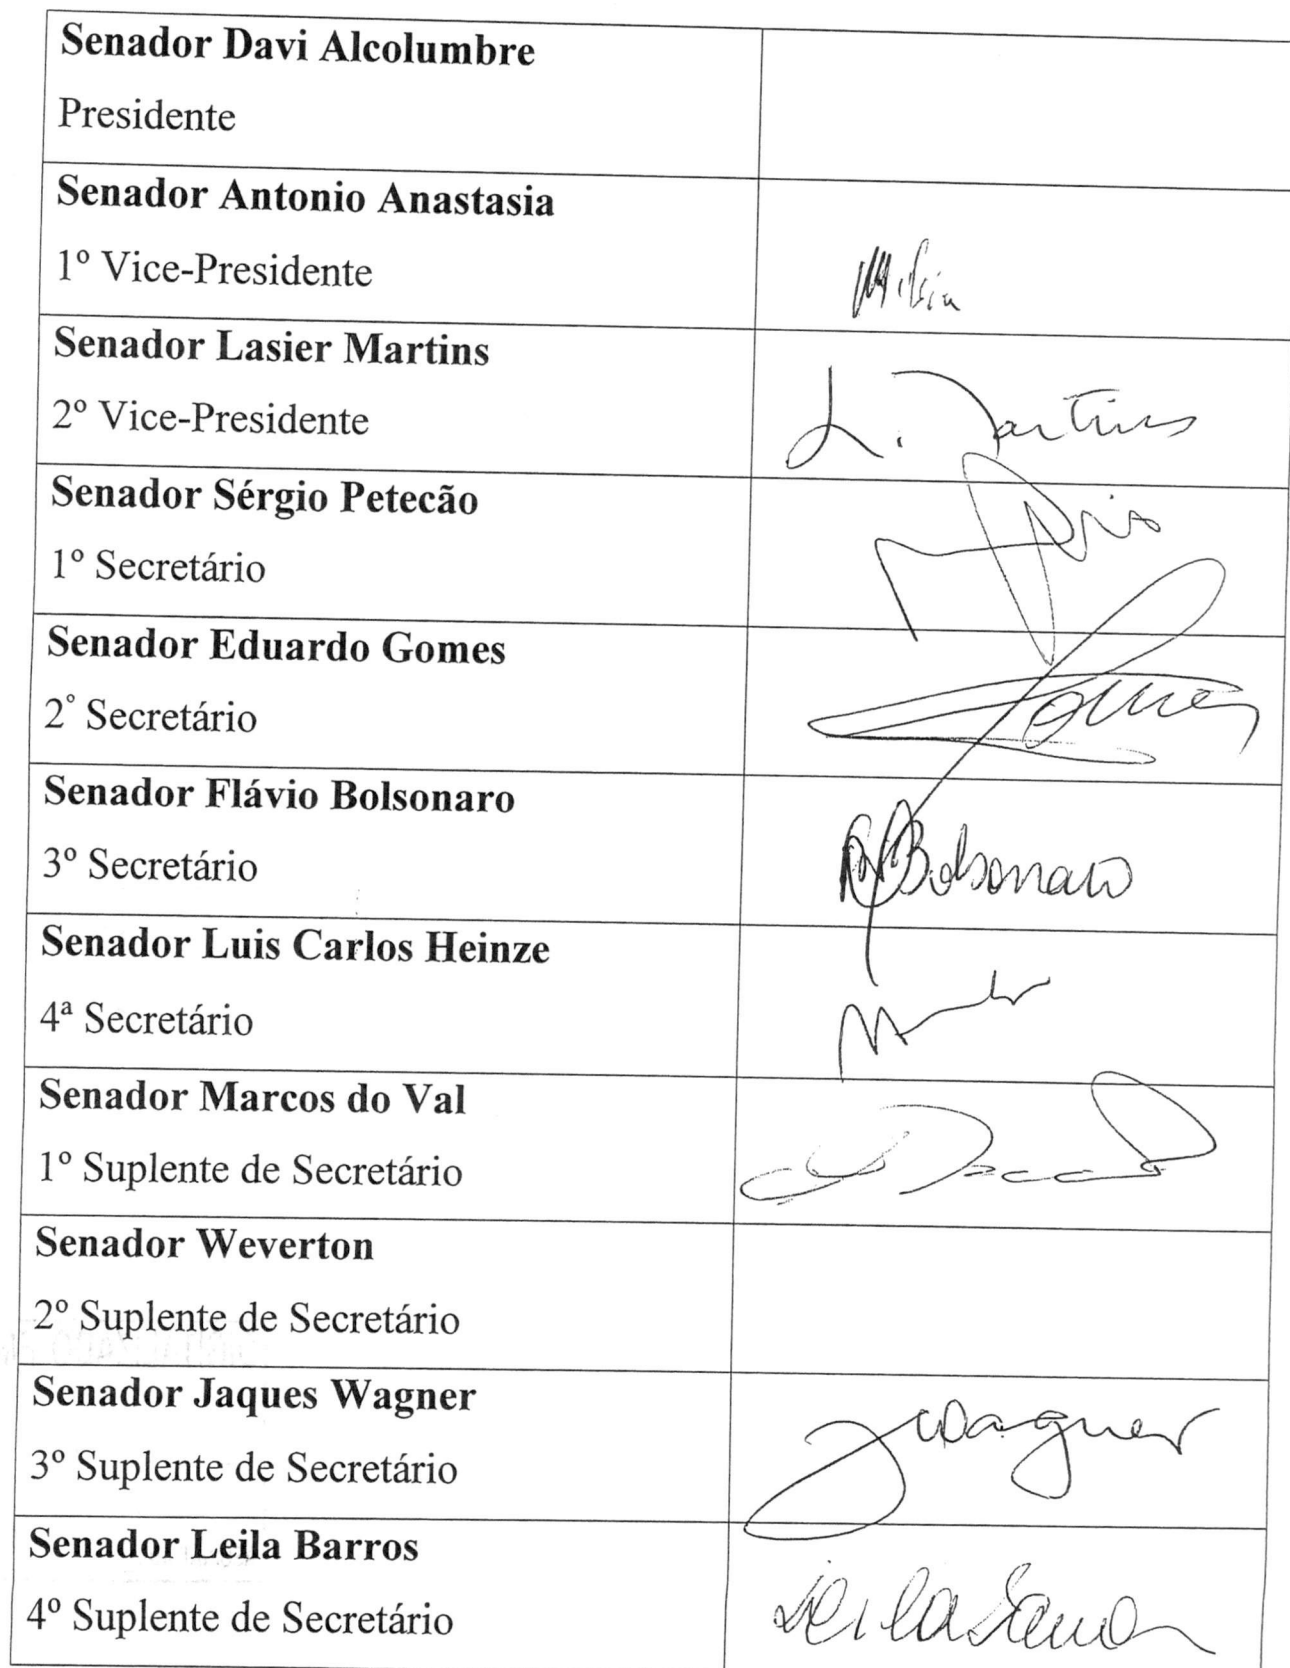 Senador Davi Alcolumbre
Presidente
Senador Antonio Anastasia
1º Vice-Presidente
Senador Lasier Martins
2º Vice-Presidente
L. Martins
Senador Sérgio Petecão
1º Secretário
Senador Eduardo Gomes
2° Secretário
Gomes
Senador Flávio Bolsonaro
3º Secretário
Bolsonaro
Senador Luis Carlos Heinze
4ª Secretário
Senador Marcos do Val
1º Suplente de Secretário
Senador Weverton
2º Suplente de Secretário
Senador Jaques Wagner
3º Suplente de Secretário
JWagner
Senador Leila Barros
4º Suplente de Secretário
Leila Barros